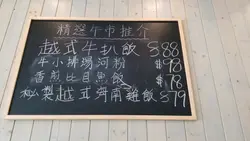 精選午市推介
越式牛扒飯 $88
牛小排湯河粉 $98
香煎比目魚飯 $78
越式海南雞飯 $79